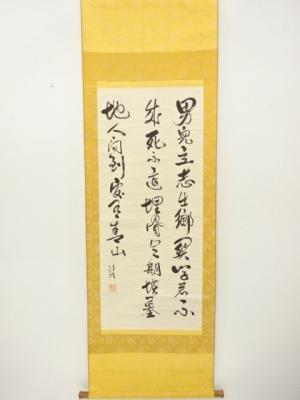 男兒立志出鄉関学若不
成死不還埋骨豈期墳墓
地人間到處有青山